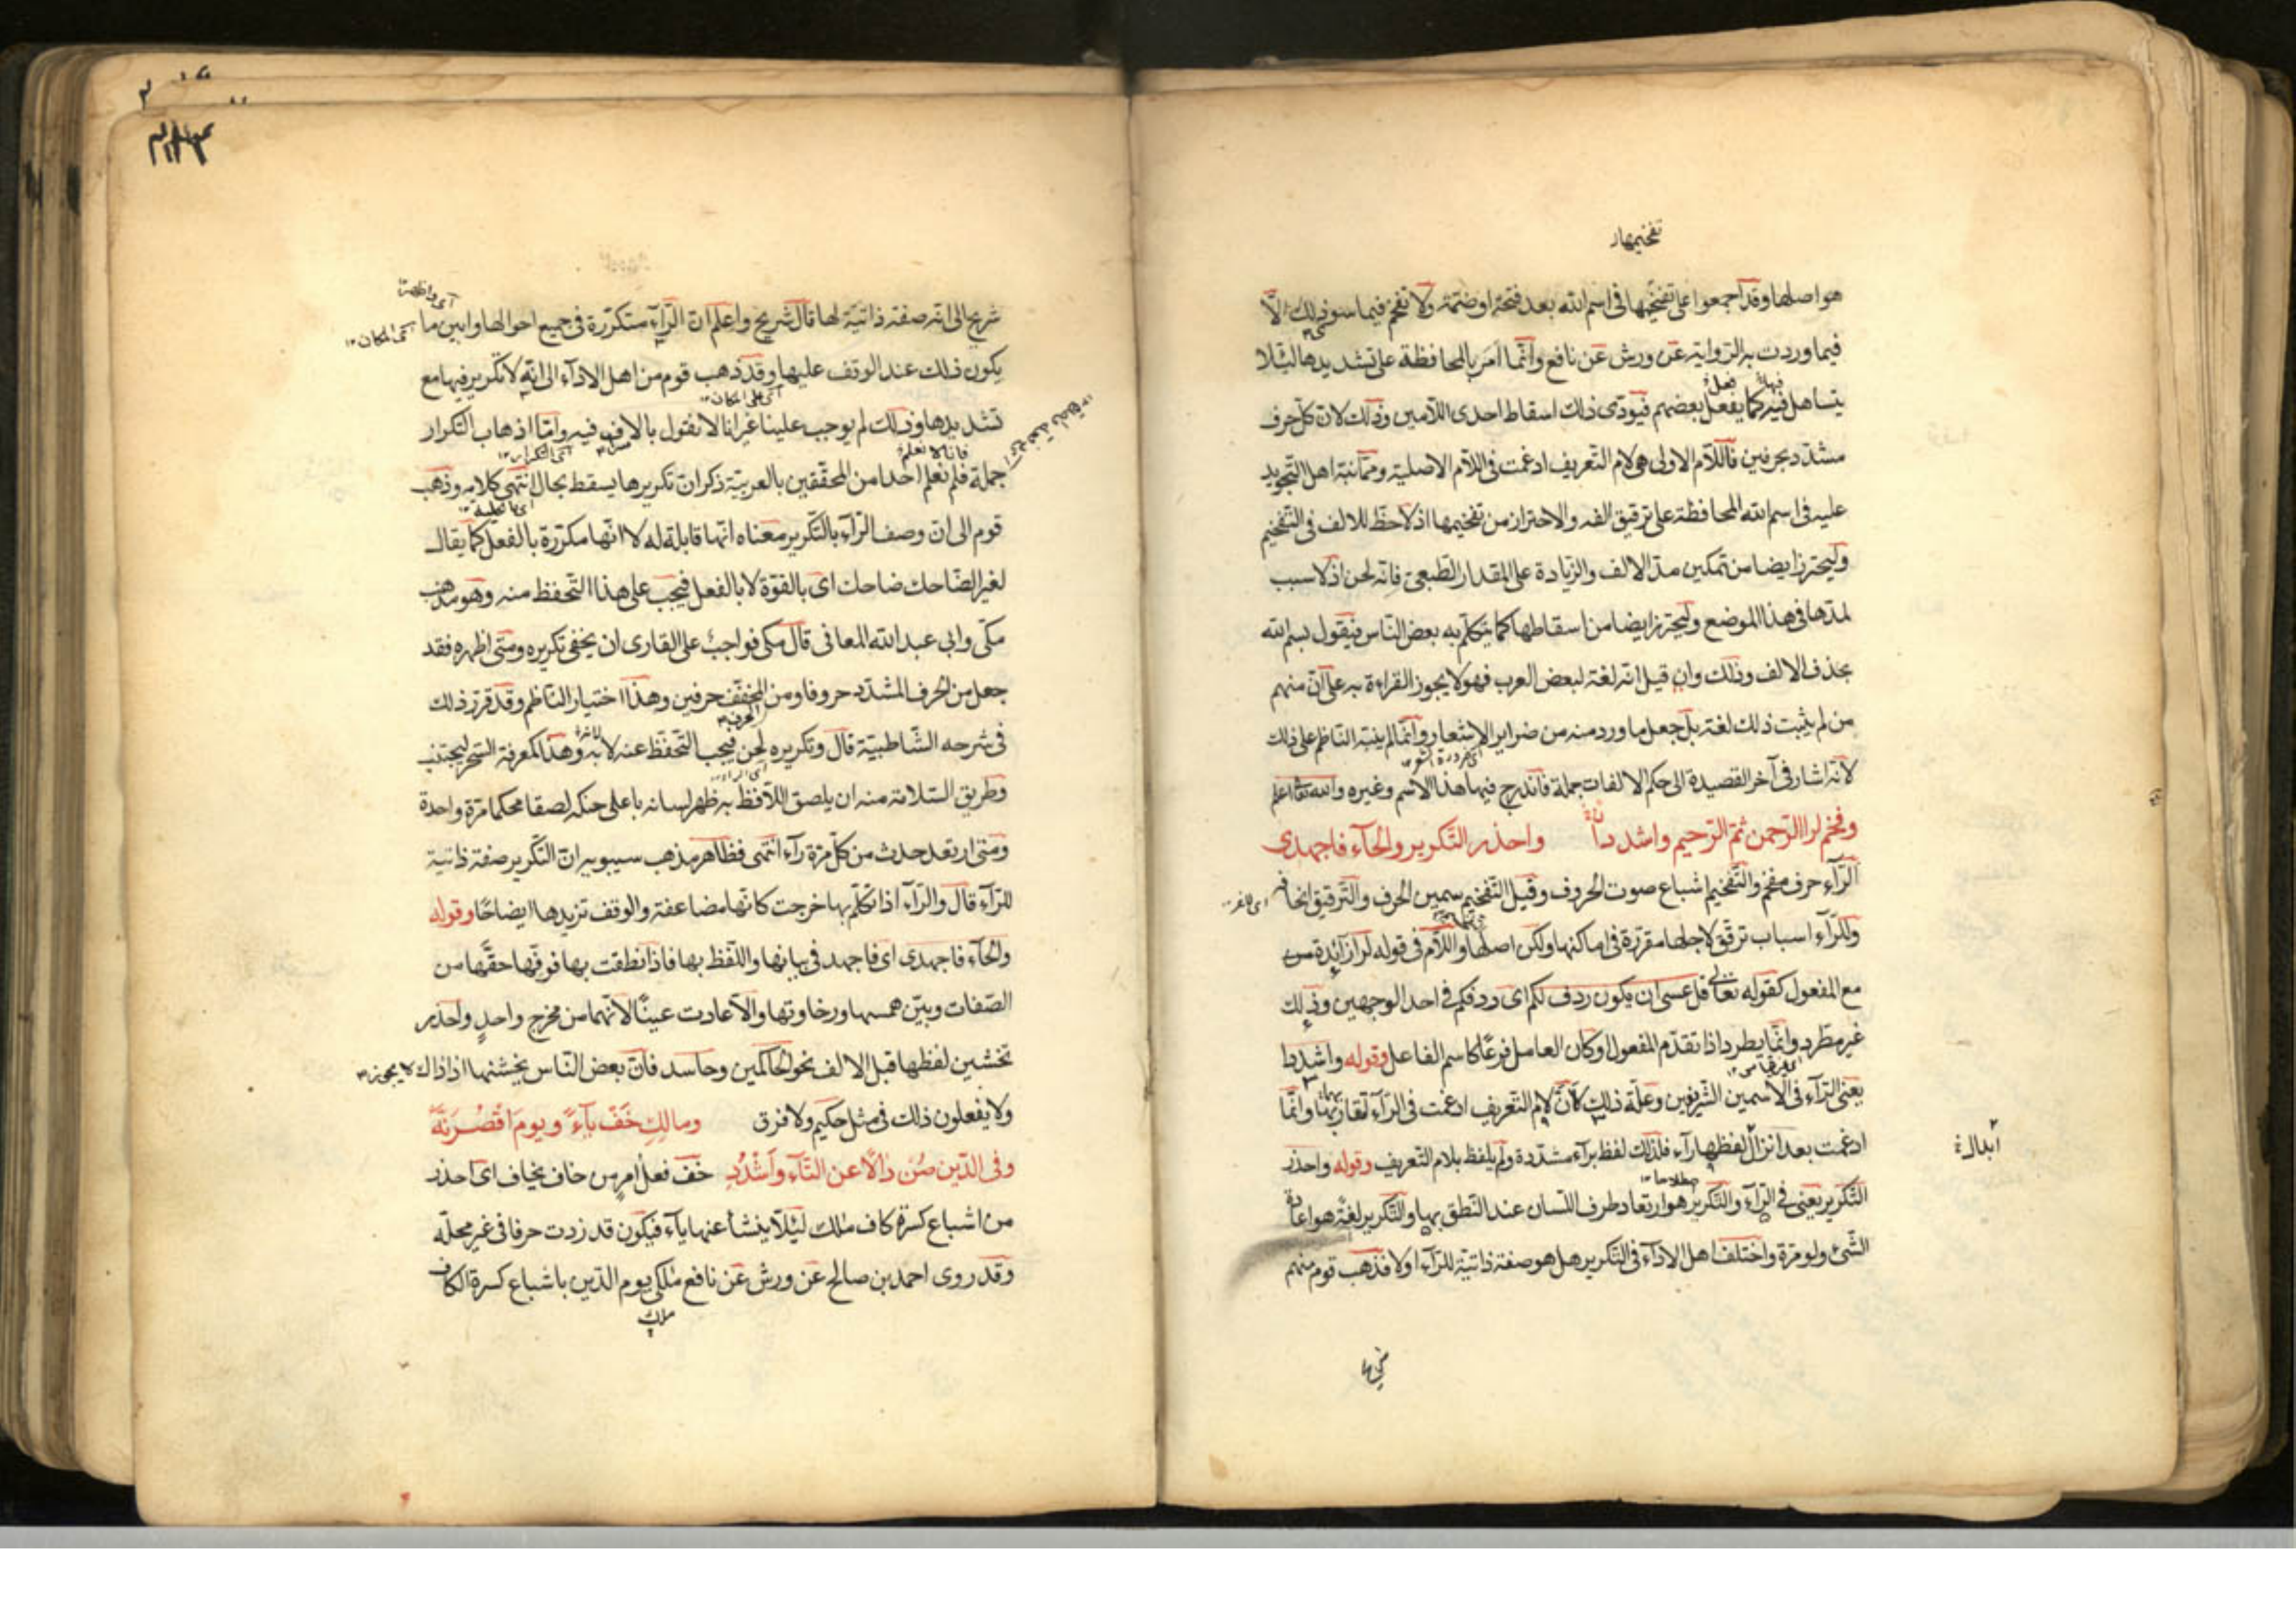 تفخيمها
هو اصلها وقد اجمعوا على تفخيمها فى اسم الله بعد فتحة او ضمة ولا تفخم فيما سوى ذلك الّا
فيما وردت به الرواية عن ورش عن نافع وانّما امر بالمحافظة على تشديدها لئلا
يتساهل فيه كما يفعل بعضهم فيؤدى ذلك اسقاط احدى اللامين وذلك لان كل حرف
مشدّد بحرفين فاللّام الاولى هى لام التعريف ادغمت فى اللّام الاصلية وممّا نبّه اهل التجويد
عليه فى اسم الله المحافظة على ترقيق الفه والاحتراز من تفخيمها اذ لا حظ للالف فى التفخيم
وليحترز ايضا من تمكين مدّ الالف والزيادة على المقدار الطبعى فانّه لحن اذ لا سبب
لمدّها فى هذا الموضع وليحترز ايضا من اسقاطها كما يتكلّم به بعض النّاس فيقول بسم الله
بحذف الالف وذلك وان قيل انه لغة لبعض العرب فهو لا يجوز القراءة به على انّ منهم
من لم يثبت ذلك لغة بل جعل ما ورد منه من ضراير الاشعار وانّما لم ينبّه النّاظم على ذلك
لانّه اشار فى آخر القصيدة الى حكم الالفات جملة فاندرج فيها هذا الاسم وغيره والله تعالى اعلم
وفخم لرا الرّحمن ثمّ الرّحيم واشددا واحذر التّكرير والحآء فاجهدى
الرّاء حرف مفخم والتّفخيم اشباع صوت الحروف وقيل التّفخيم سمين الحرف والتّرقيق انحافه
وللرّآء اسباب ترقّق لاجلها مقررة فى اماكنها ولكن اصلها واللّام فى قوله لرا زائدة
مع المفعول كقوله تعالى قل عسى ان يكون ردف لكم اى ردفكم فى احد الوجهين وذلك
غير مطّرد وانّما يطرد اذا تقدّم المفعول او كان العامل فرعًا كاسم الفاعل وقوله واشددا
يعنى الرّآء فى الاسمين الشّريفين وعلّة ذلك لانّ لام التّعريف ادغمت فى الرّآء لتقاربهما وانّما
ادغمت بعد انزال لفظها رآء فلذلك لفظ برآء مشدّدة ولم يلفظ بلام التّعريف وقوله واحذر
ابدال
التّكرير يعنى فى الرّآء والتّكرير هو ارتعاد طرف اللّسان عند النّطق بها والتّكرير لغة هو اعادة
الشّئ ولو مرّة واختلف اهل الاداء فى التّكرير هل هو صفة ذاتيّة للرّآء او لا فذهب قوم منهم
شريح الى انه صفة ذاتيّة لها قال شريح واعلم انّ الرّآء متكرّرة فى جميع احوالها وابين ما
يكون ذلك عند الوقف عليها وقد ذهب قوم من اهل الاداء الى انّه لا تكرير فيها مع
تشديدها وذلك لم يوجب علينا غير انا لا نقول بالاسراف فيه وامّا اذهاب التّكرار
جملة فلم نعلم احدا من المحقّقين بالعربيّة ذكر انّ تكريرها يسقط بحال انتهى كلامه وذهب
قوم الى انّ وصف الرّآء بالتّكرير معناه انّها قابلة له لا انّها مكرّرة بالفعل كما يقال
لغير الضّاحك ضاحك اى بالقوّة لا بالفعل فيجب على هذا التّحفظ منه وهو مذهب
مكّى وابى عبد الله المعافى قال مكى فواجب على القارى ان يخفى تكريره ومتى اظهره فقد
جعل من الحرف المشدّد حروفا ومن المخفّف حرفين وهذا اختيار النّاظم وقد قرّر ذلك
فى شرحه الشّاطبيّة قال وتكريره لحن فيجب التّحفّظ عنه لا به وهذا كمعرفة السّحر ليجتنب
وطريق السّلامة منه ان يلصق اللّافظ به ظهر لسانه باعلى حنكه لصقا محكما مرّة واحدة
ومتى ارتعد حدث من كلّ مرّة رآء انتهى فظاهر مذهب سيبويه انّ التّكرير صفة ذاتيّة
للرّآء قال والرّآء اذا تكلّم بها خرجت كانّها مضاعفة والوقف تزيدها ايضاحًا وقوله
والحآء فاجهدى اى فاجهد فى بيانها واللّفظ بها فاذا نطقت بها فوفّها حقّها من
الصّفات وبيّن همسها ورخاوتها والّا عادت عينًا لانّهما من مخرج واحدٍ واحذر
تخشين لفظها قبل الالف نحو الحاكمين وحاسد فانّ بعض النّاس يخشنها اذ ذاك لا يجوز
ولا يفعلون ذلك فى مثل حكيم ولا فرق ومالكِ خَفْ يآءً ويومَ اقْصُرَنَّهُ
وفى الدّين صُن دالًا عن التّآء وَاَشْدُدِ خَف فعل امرٍ من خاف يخاف اى احذر
من اشباع كسرة كاف مٰلك لئلّا ينشأ عنها يآء فيكون قد زدت حرفا فى غير محلّه
وقد روى احمد بن صالح عن ورش عن نافع مٰلكى يوم الدّين باشباع كسرة الكاف